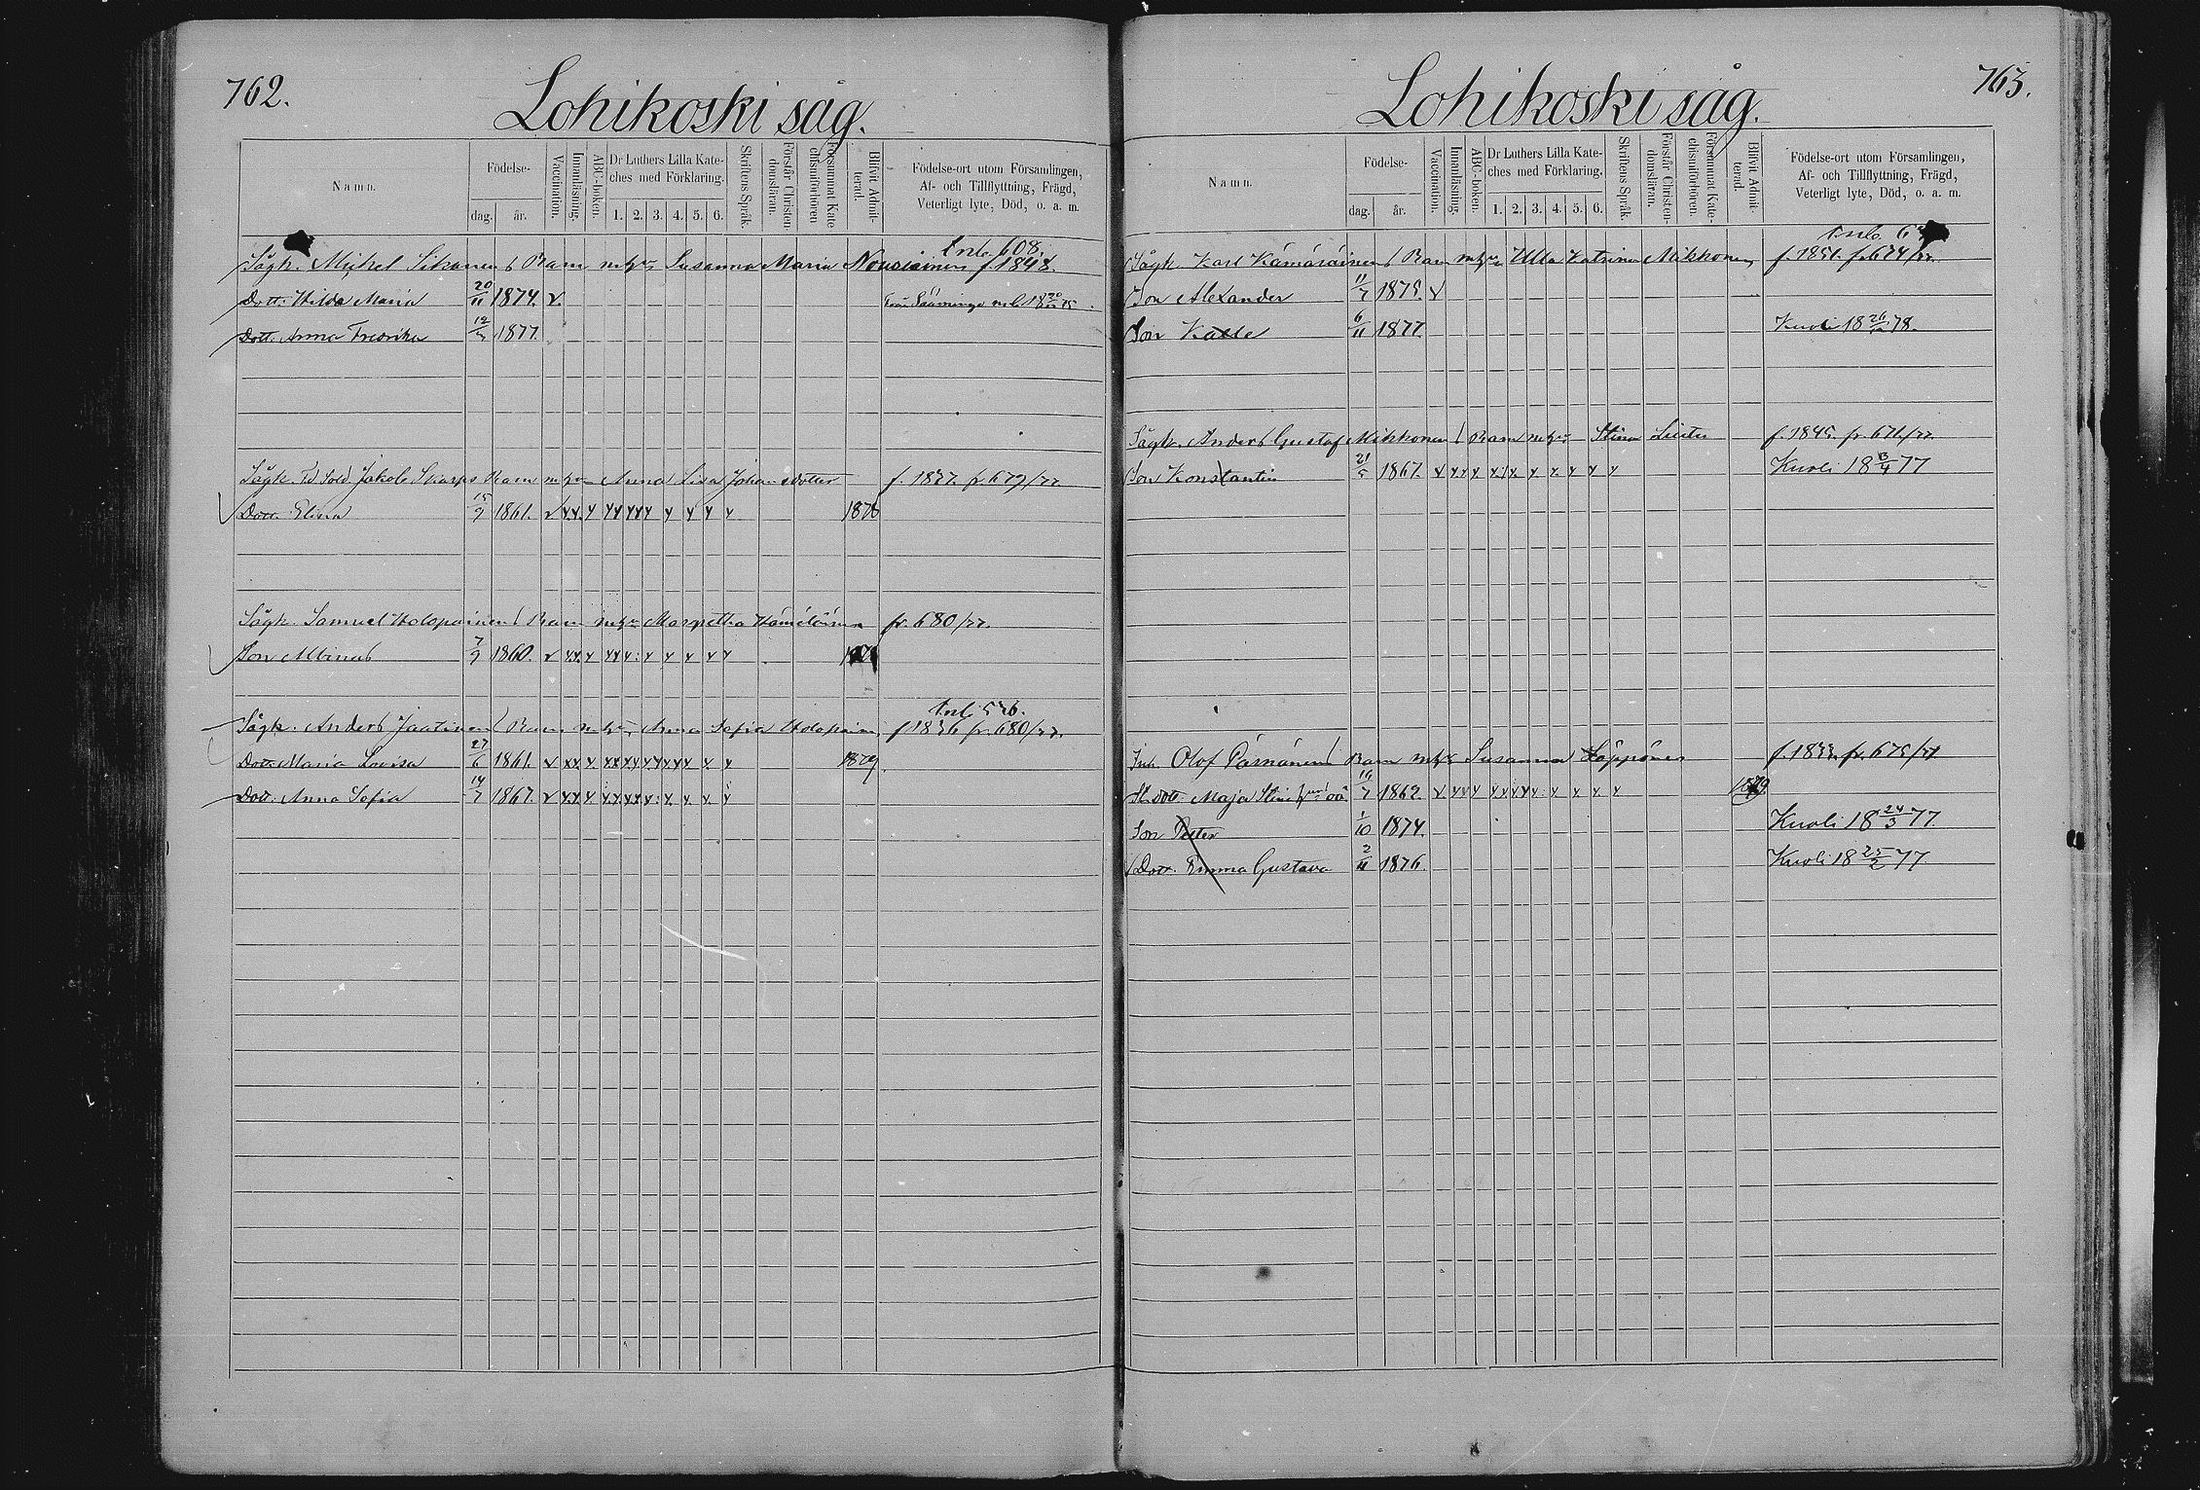 762.
Lohikoski såg.
Namn.
Födelse-
dag.
år.
Vaccination.
Innanläsning.
ABC-boken.
Dr Luthers Lilla Kate-
ches med Förklaring.
1. 2. 3. 4. 5. 6.
Skriftens Språk.
Förstår Christen-
domsläran.
Försummat Kate-
chismiförhören.
Blifvit Admit-
terad.
Födelse-ort utom Församlingen,
Af- och Tillflyttning, Frägd,
Veterligt lyte, Död, o. a. m.
608.
Sågk. Mikel Sikanen Barn Susanna Maria Nousiainen f. 1848.
Dott. Hilda Maria 20/11 1874. v.
Dott. Anna Fredrika 12/5 1877.
Sågk. Jakob Skarps Barn Anna Lisa Johansdotter f. 1827. fr. 679/77.
Dott. Elina 15/9 1861. v 1878
Sågk. Samuel Holopainen Barn Margetha Hämäläinen fr. 680/77.
Son Albinus 7/9 1860. v
Sågk. Anders Jaatinen Barn Anna Sofia Holopainen f. 1836 fr. 680/77.
Dott. Maria Lovisa 27/6 1861. v 1879
Dott. Anna Sofia 14/7 1867. v
763.
Lohikoski såg.
Namn.
Födelse-
dag.
år.
Vaccination.
Innanläsning.
ABC-boken.
Dr Luthers Lilla Kate-
ches med Förklaring.
1. 2. 3. 4. 5. 6.
Skriftens Språk.
Förstår Christen-
domsläran.
Försummat Kate-
chismiförhören.
Blifvit Admit-
terad.
Födelse-ort utom Församlingen,
Af- och Tillflyttning, Frägd,
Veterligt lyte, Död, o. a. m.
Sågk. Karl Kämäräinen Barn Ulla Katrina Mikkonen f. 1851. fr. 674/77.
Son Alexander 11/7 1875. v
Son Kalle 6/11 1877. Kuoli 18 78.
Sågk. Anders Gustaf Mikkonen Barn Stina f. 1845. fr. 671/77.
Son Konstantin 21/5 1867. v Kuoli 18 13/4 77
Inh. Olof Päsnänen Barn Susanna Läppönen f. 1833. fr. 675/77
Dott. Maja Stina 16/7 1862. v 1879.
Son Petter 1/10 1874. Kuoli 18 24/3 77.
Dott. Emma Gustava 2/11 1876. Kuoli 18 25/2 77